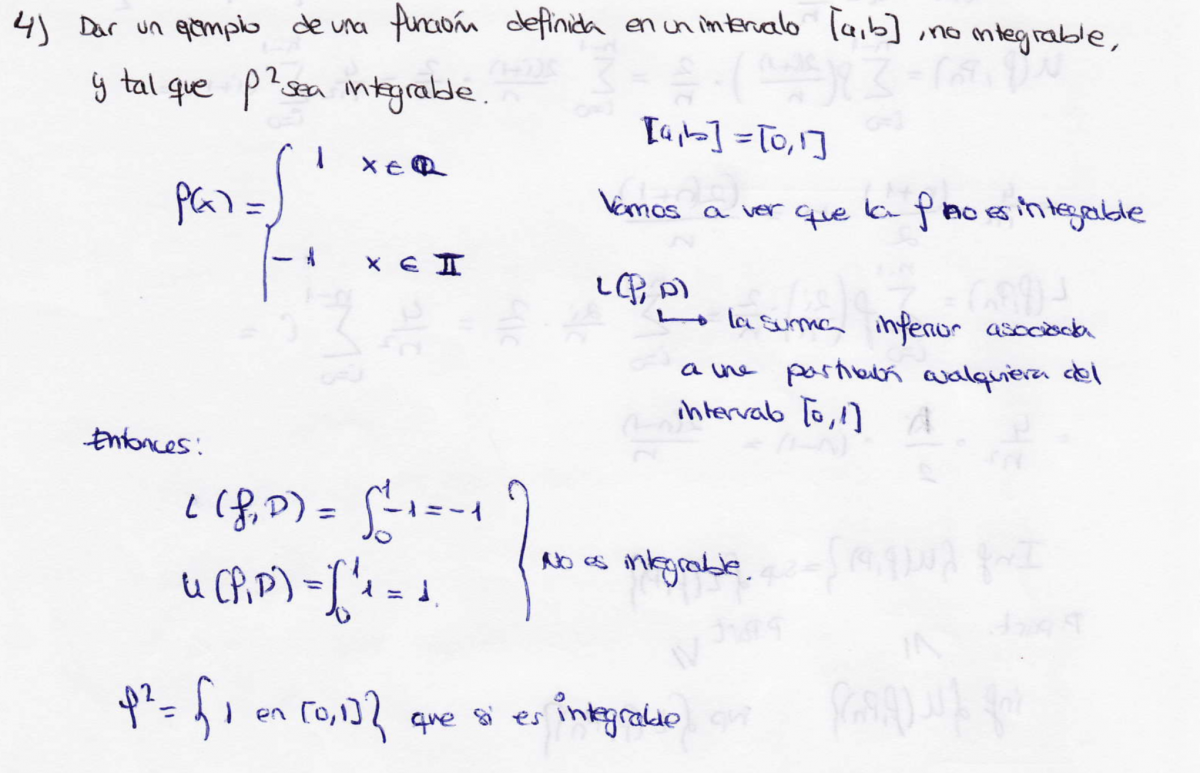 4) Dar un ejemplo de una función definida en un intervalo [a,b], no integrable,
y tal que f² sea integrable.
[a,b] = [0,1]
f(x) = { 1 x ∈ Q
-1 x ∈ II
Vamos a ver que la f no es integrable
L(f,D)
↳ la suma inferior asociada
a una partición cualquiera del
intervalo [0,1]
Entonces:
L(f,D) = ∫₀¹ -1 = -1
U(f,D) = ∫₀¹ 1 = 1.
} No es integrable.
f² = { 1 en [0,1] } que si es integrable